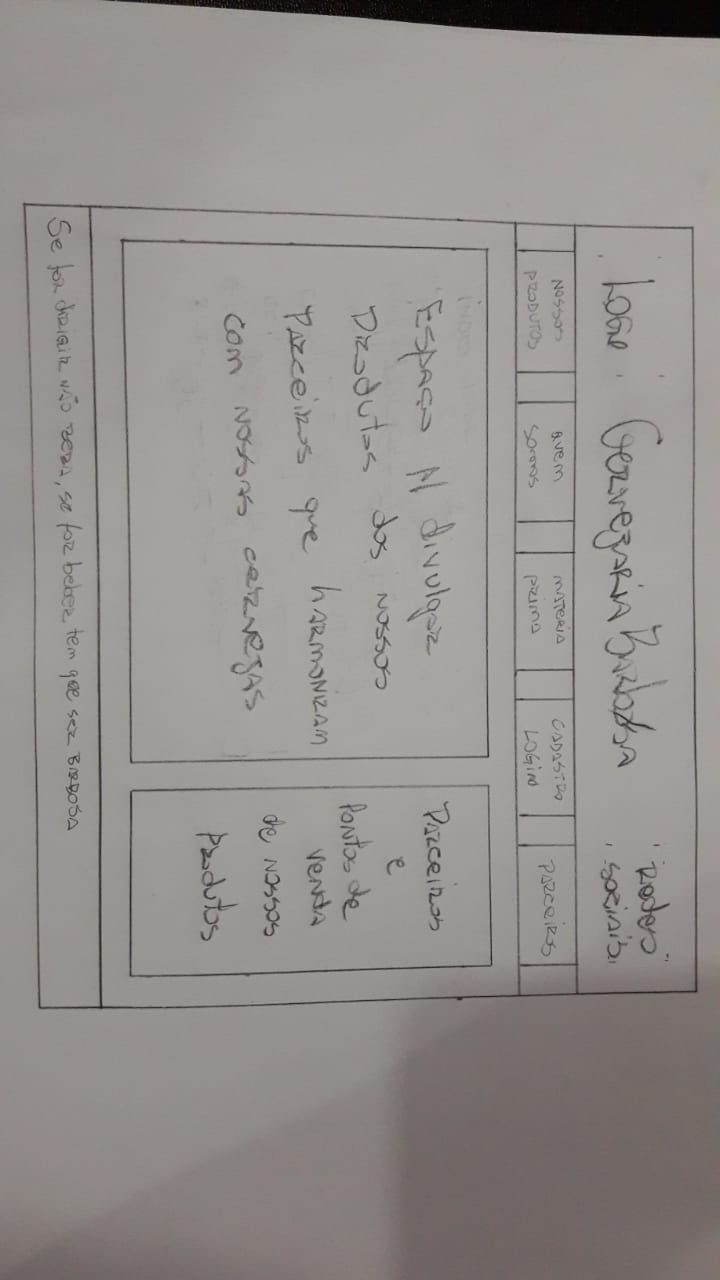 Logo Cervejaria Barbosa
Redes
sociais
Nossos
Produtos
Quem
somos
Materia
Prima
Cadastro
Login
Parceiros
Espaço p/ divulgar
Produtos dos nossos
Parceiros que harmonizam
com nossas cervejas
Parceiros
e
Pontos de
venda
de nossos
Produtos
Se for dirigir não beba, se for beber tem que ser Barbosa